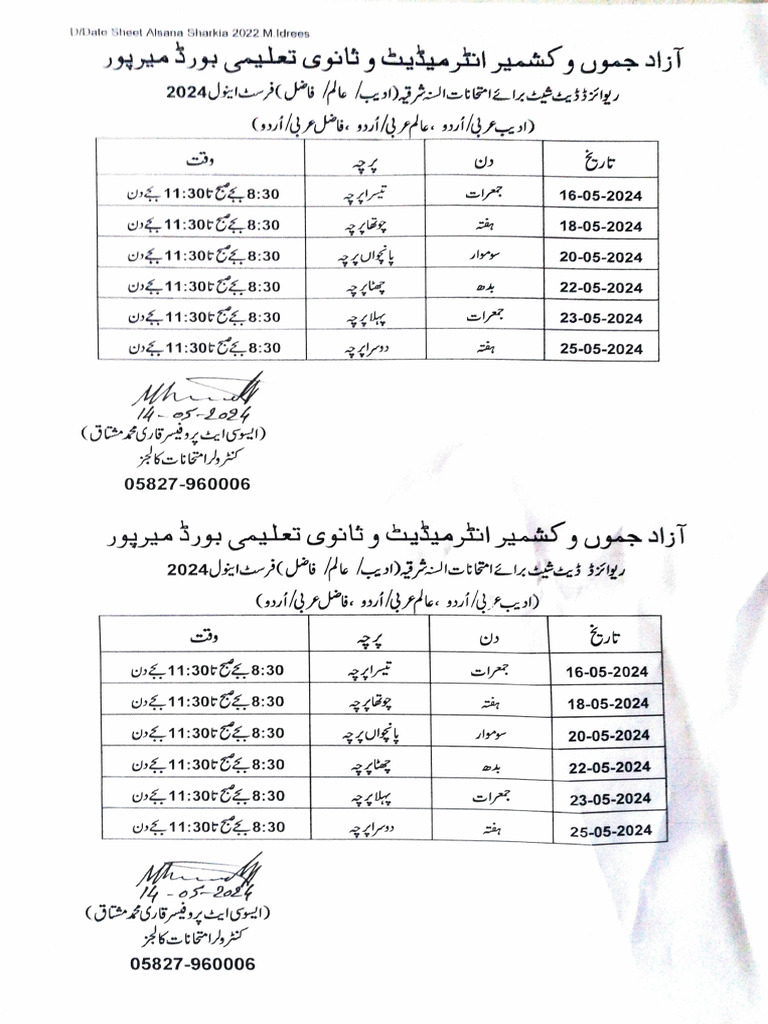 D/Date Sheet Alsana Sharkia 2022.M.Idrees
آزاد جموں و کشمیر انٹرمیڈیٹ و ثانوی تعلیمی بورڈ میرپور
ریوائزڈ ڈیٹ شیٹ برائے امتحانات السنہ شرقیہ (ادیب/ عالم/ فاضل) فرسٹ اینول 2024
(ادیب عربی/اُردو ،عالم عربی/اُردو ،فاضل عربی/اُردو)
تاریخ دن پرچہ وقت
16-05-2024 جمعرات تیسرا پرچہ 8:30 بجے صبح تا 11:30 بجے دن
18-05-2024 ہفتہ چوتھا پرچہ 8:30 بجے صبح تا 11:30 بجے دن
20-05-2024 سوموار پانچواں پرچہ 8:30 بجے صبح تا 11:30 بجے دن
22-05-2024 بدھ چھٹا پرچہ 8:30 بجے صبح تا 11:30 بجے دن
23-05-2024 جمعرات پہلا پرچہ 8:30 بجے صبح تا 11:30 بجے دن
25-05-2024 ہفتہ دوسرا پرچہ 8:30 بجے صبح تا 11:30 بجے دن
14-05-2024
(ایسوسی ایٹ پروفیسر قاری محمد مشتاق)
کنٹرولر امتحانات کالجز
05827-960006
آزاد جموں و کشمیر انٹرمیڈیٹ و ثانوی تعلیمی بورڈ میرپور
ریوائزڈ ڈیٹ شیٹ برائے امتحانات السنہ شرقیہ (ادیب/ عالم/ فاضل) فرسٹ اینول 2024
(ادیب عربی/اُردو ،عالم عربی/اُردو ،فاضل عربی/اُردو)
تاریخ دن پرچہ وقت
16-05-2024 جمعرات تیسرا پرچہ 8:30 بجے صبح تا 11:30 بجے دن
18-05-2024 ہفتہ چوتھا پرچہ 8:30 بجے صبح تا 11:30 بجے دن
20-05-2024 سوموار پانچواں پرچہ 8:30 بجے صبح تا 11:30 بجے دن
22-05-2024 بدھ چھٹا پرچہ 8:30 بجے صبح تا 11:30 بجے دن
23-05-2024 جمعرات پہلا پرچہ 8:30 بجے صبح تا 11:30 بجے دن
25-05-2024 ہفتہ دوسرا پرچہ 8:30 بجے صبح تا 11:30 بجے دن
14-05-2024
(ایسوسی ایٹ پروفیسر قاری محمد مشتاق)
کنٹرولر امتحانات کالجز
05827-960006